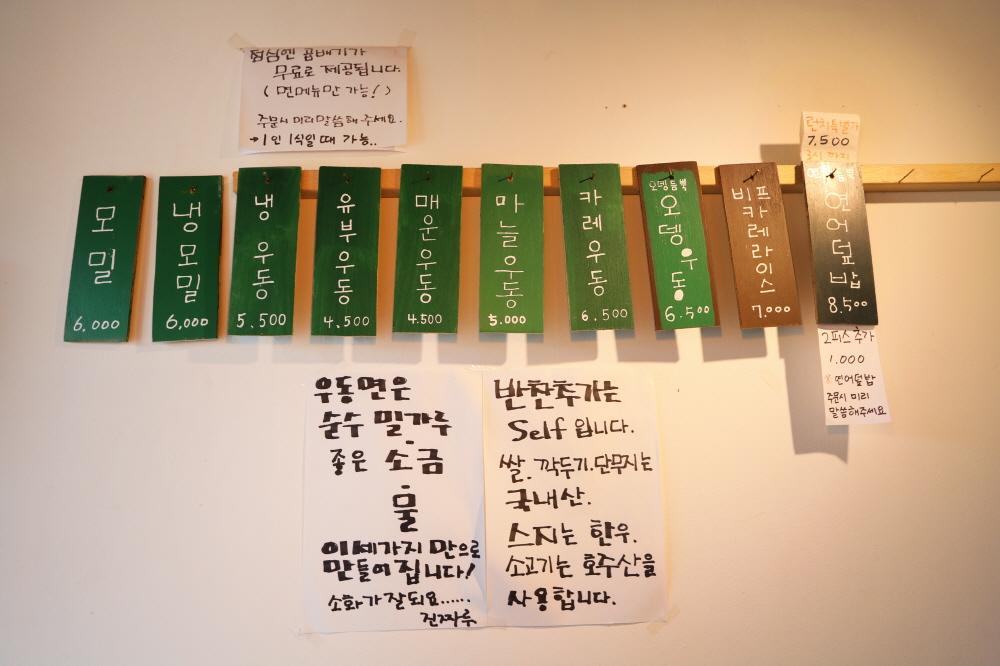 점심엔 곱배기가
무료로 제공됩니다.
(면메뉴만 가능!)
주문시 미리말씀해주세요.
→1인 1식일때 가능..
모밀
6,000
냉모밀
6,000
냉우동
5.500
유부우동
4.500
매운우동
4.500
마늘우동
5.000
카레우동
6.500
오뎅듬뿍
오뎅우동
6.500
비프카레라이스
7.000
런치특별가
7,500
3시까지
연어듬뿍
연어덮밥
8.500
2피스추가
1.000
※연어덮밥
주문시 미리
말씀해주세요
우동면은
순수 밀가루
좋은 소금
물
이세가지 만으로
만들어집니다!
소화가 잘되요......
진짜루
반찬추가는
Self 입니다.
쌀.깍두기.단무지는
국내산.
스지는 한우.
소고기는 호주산을
사용합니다.